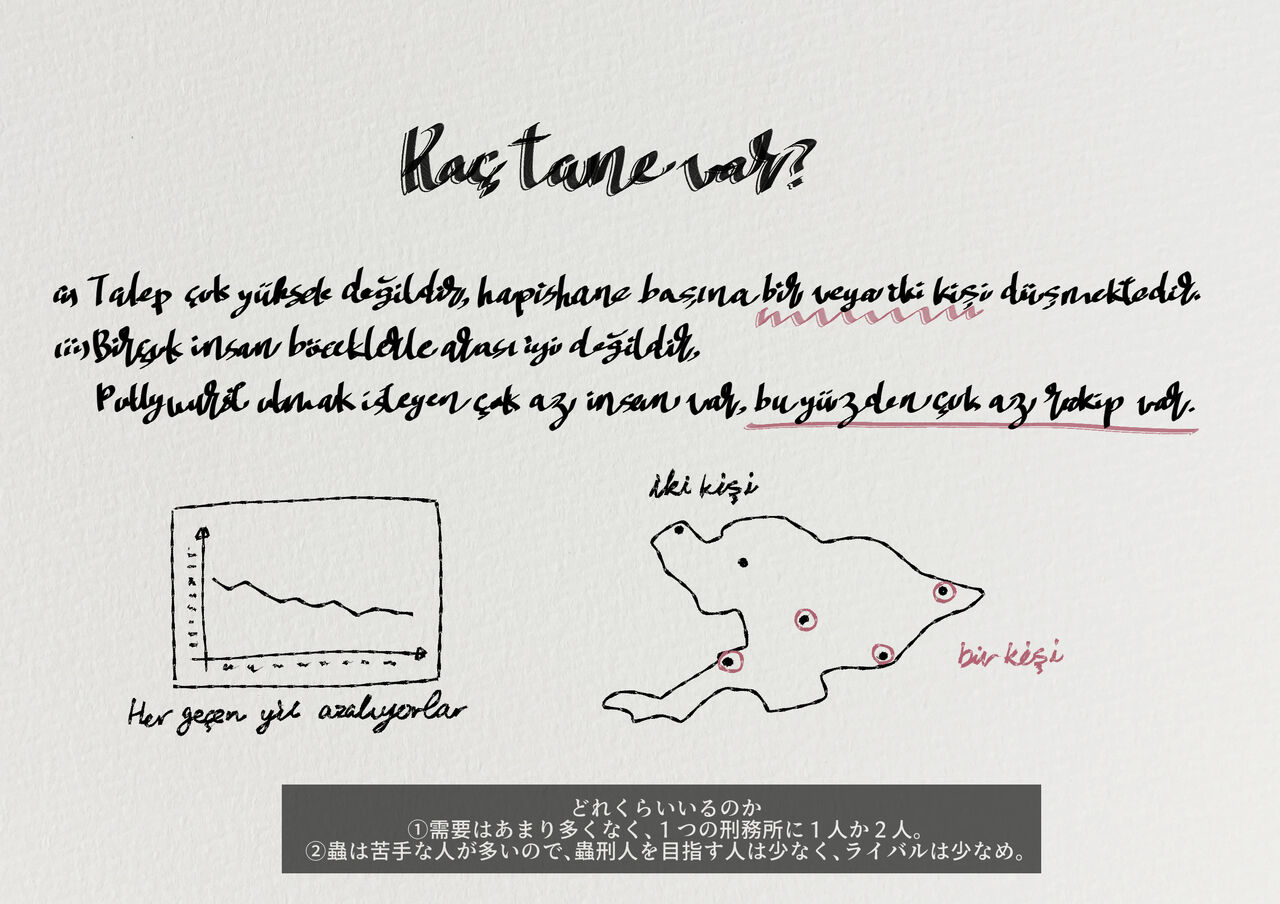 Kaç tane var?
(i) Talep çok yüksek değildir, hapishane başına bir veya iki kişi düşmektedir.
(ii) Birçok insan böceklerle arası iyi değildir,
Pollywurst olmak isteyen çok azı insan var, bu yüzden çok azı rakip var.
iki kişi
bir kişi
Her geçen yıl azalıyorlar
どれくらいいるのか
①需要はあまり多くなく、1つの刑務所に1人か2人。
②蟲は苦手な人が多いので、蟲刑人を目指す人は少なく、ライバルは少なめ。